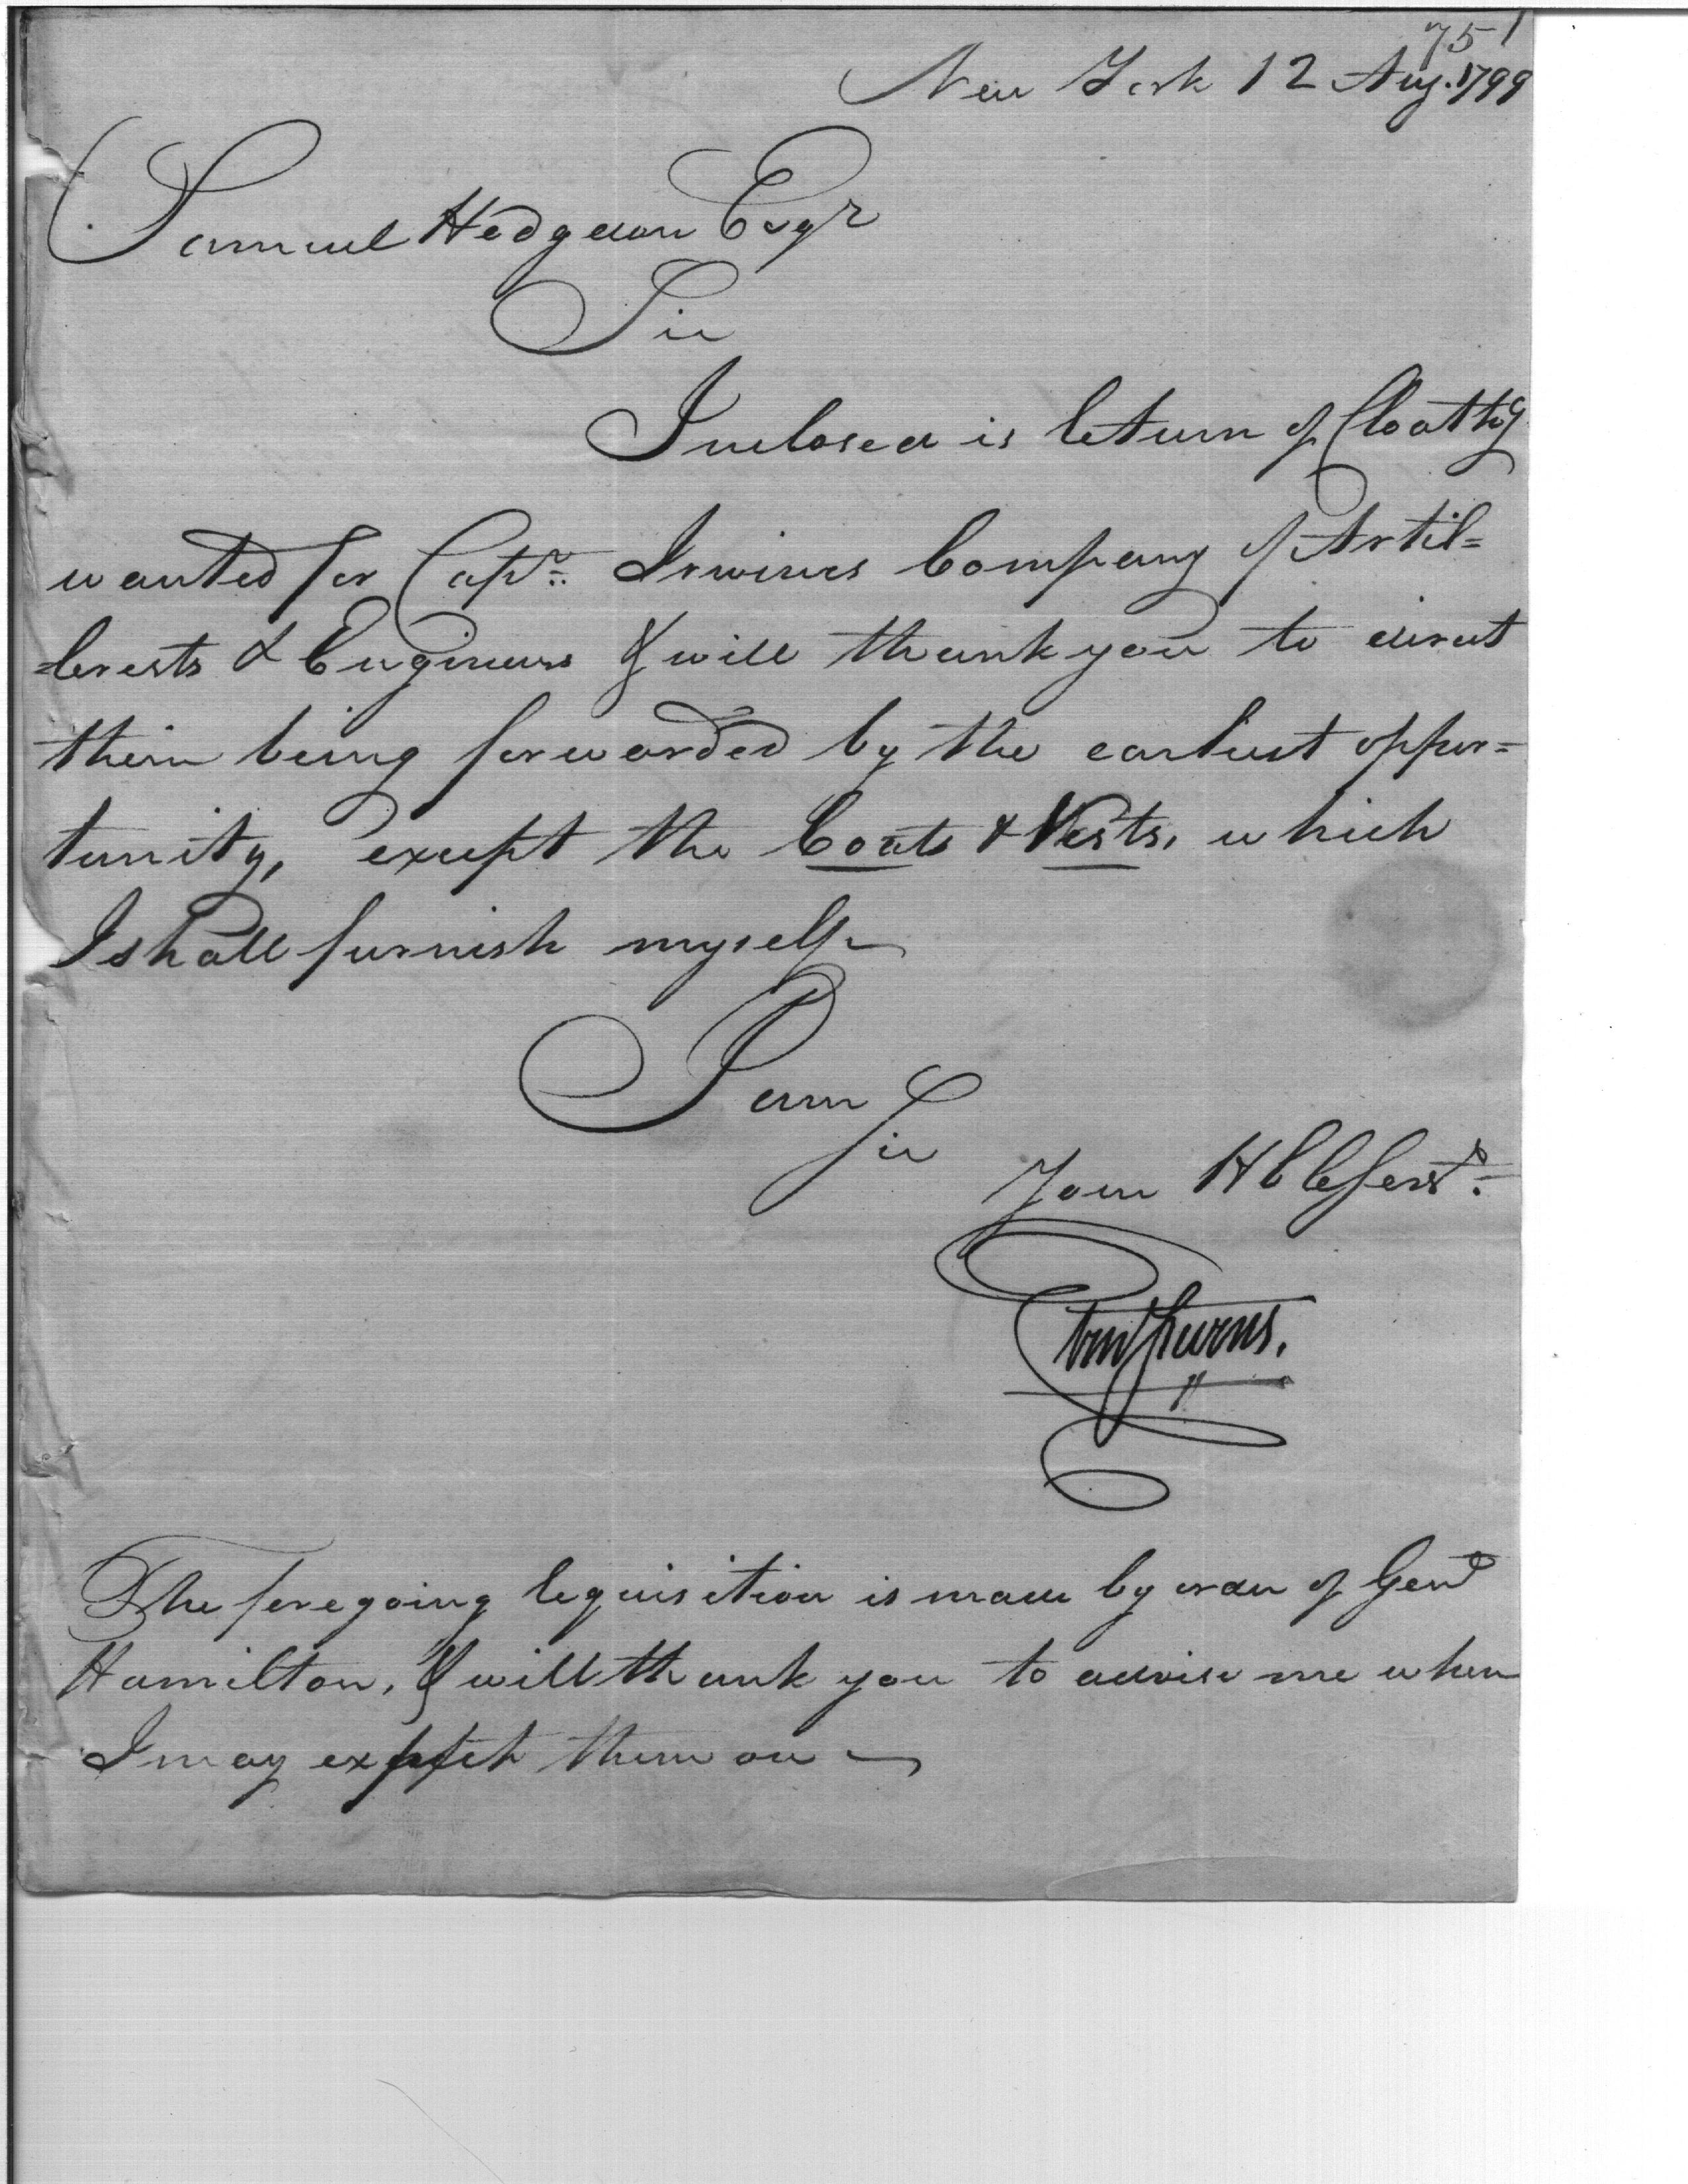 751
New York 12 Aug. 1799
Samuel Hodgdon Esqr
Sir
Inclosed is return of Cloathg
wanted for Captn. Irwines Company of Artil=
=lerests & Engineers & will thank you to direct
their being forwarded by the earliest oppor=
tunity, except the Coats & Vests, which
I shall furnish myself
I am
Sir
Your Hble Servt.
The foregoing requisition is made by order of Genl
Hamilton, & will thank you to advise me when
I may expect them on